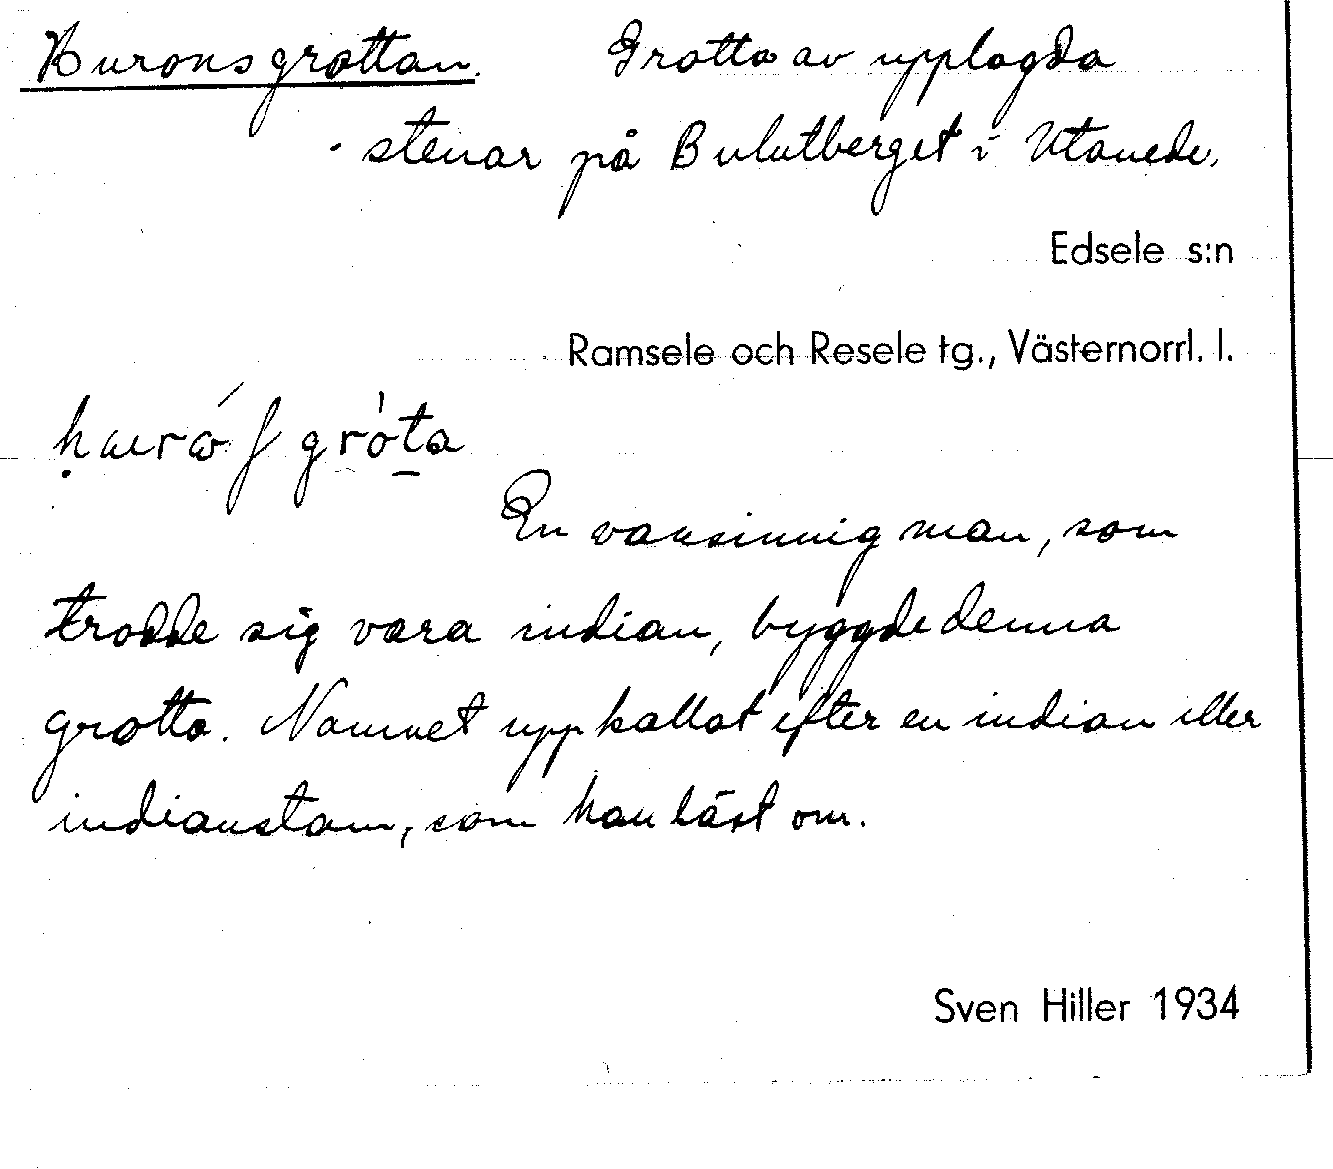 Huronsgrottan. Grotta av upplagda
stenar på Bulutberget i Utanede.
Edsele s:n
Ramsele och Resele tg., Västernorrl. l.
En vansinnig man, som
trodde sig vara indian, byggde denna
grotta. Namnet uppkallat efter en indian eller
indianstam, som han läst om.
Sven Hiller 1934